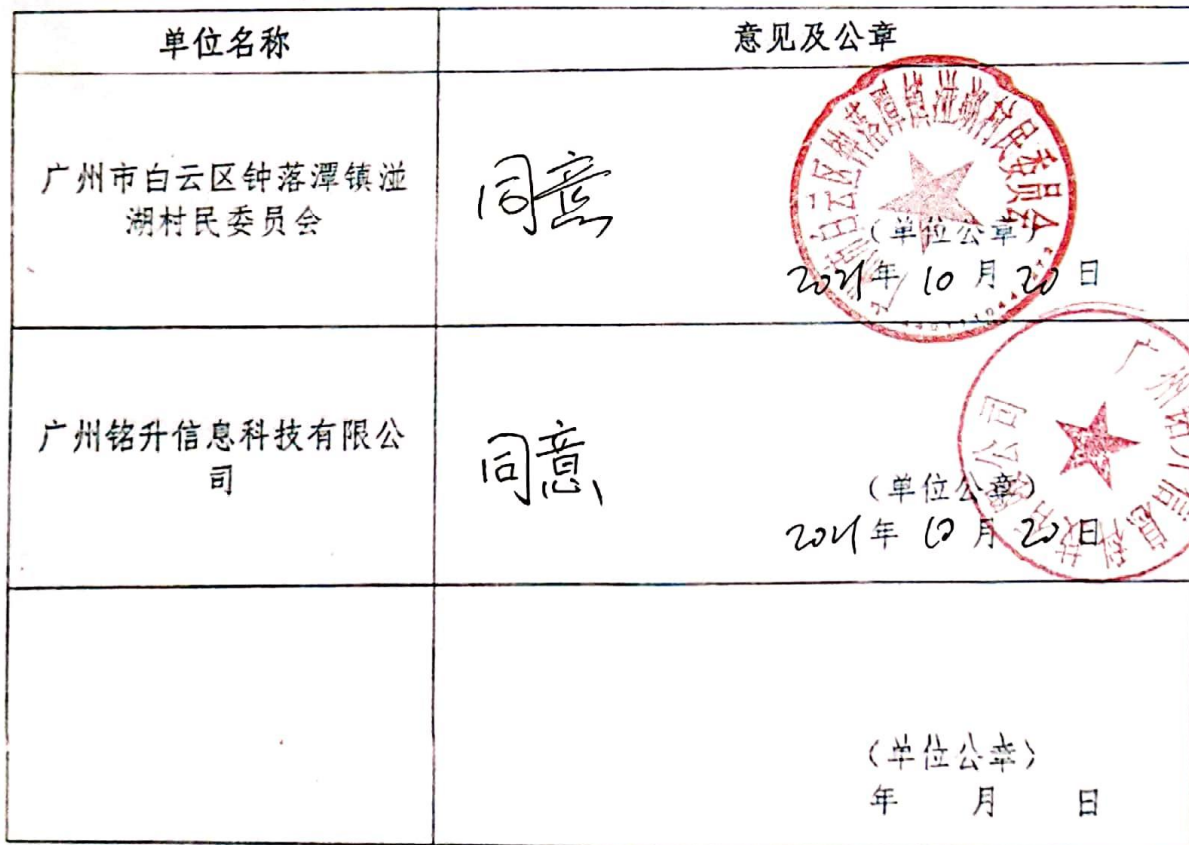 单位名称
意见及公章
广州市白云区钟落潭镇湴
湖村民委员会
同意
广州市白云区钟落潭镇湴湖村民委员会
（单位公章）
2021年 10 月 20 日
广州铭升信息科技有限公
司
同意
广州铭升信息科技有限公司
（单位公章）
2021年 10 月 20 日
（单位公章）
年 月 日